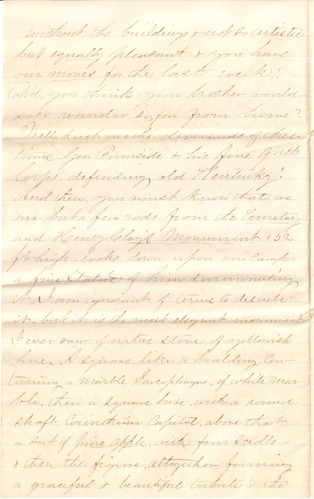 without the buildings & not so artistic
but equally pleasant & you have
our moves for the last week!
Did you think your brother would
ever wander so far from home?
Well such are the demands of these
times. Gen Burnside & his fine
Corps defending old Kentucky!
And then you must know that we
are but a few rods from the Cemetery
and Henry Clay's Monument 132
ft high looks down upon our camp
a fine statue of him surmounting
it. I am ignorant of terms to describe
it, but it is the most elegant monument
I ever saw, of native stone of yellowish
hue. A square, like a building con-
taining a marble Sarcophagus, of white mar-
ble, then a square base, with a round
shaft, Corinthian Capital, above that
a sort of pine apple, with four scrolls
& then the figure, altogether forming
a graceful & beautiful tribute to the